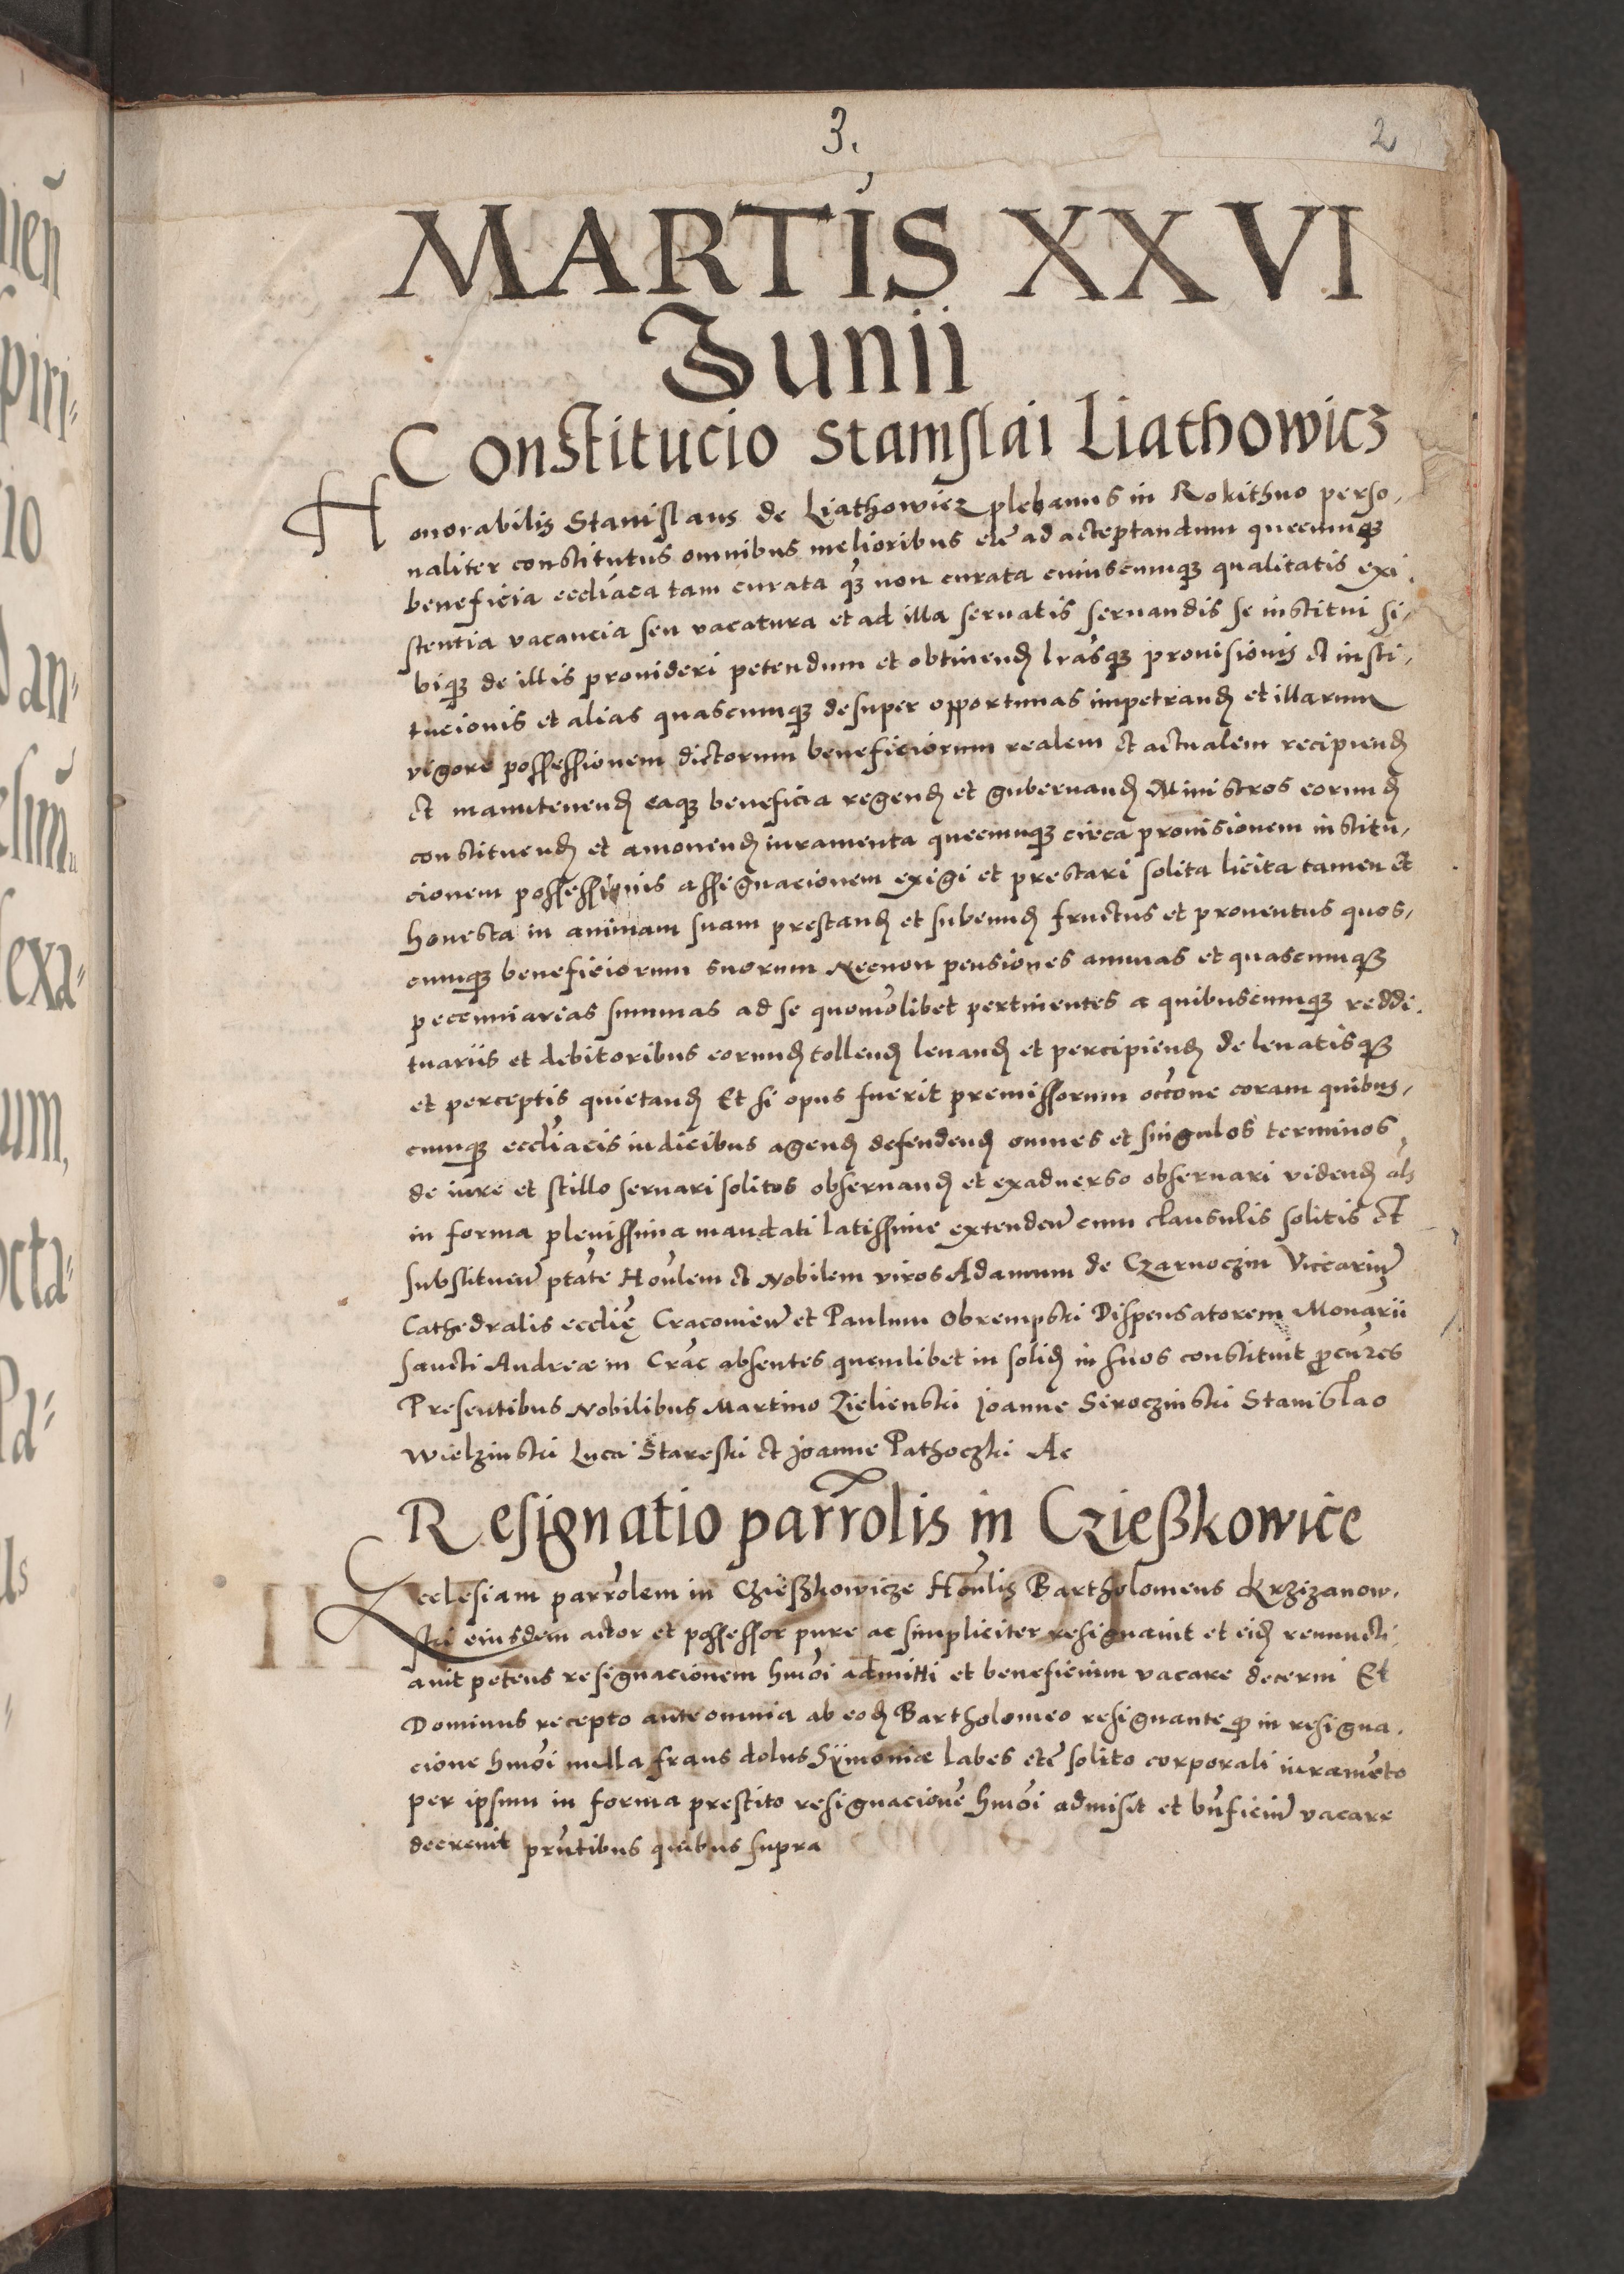 3.
2
MARTIS XXVI
Junii
Constitucio Stanislai Liathowicz
Honorabilis Stanislaus de Liathowicz plebanus in Rokithno perso,
naliter constitutus omnibus melioribus etc̃ ad acceptandum quecumqꝫ
beneficia eccliáca tam curata qꝫ non curata cuiuscumqꝫ qualitatis exi,
stentia vacancia seu vacatura et ad illa seruatis seruandis se institui si,
biqꝫ de illis prouideri petendum et obtinendꝫ lrãsqꝫ prouisionis et insti,
tucionis et alias quascumqꝫ desuper opportunas impetrandꝫ et illarum
vigore possessionem dictorum beneficiorum realem et actualem recipiendꝫ
et manutenendꝫ eaqꝫ beneficia regendꝫ et gubernandꝫ Ministros eorumdꝫ
constituendꝫ et amouendꝫ iuramenta quecumqꝫ circa prouisionem institu,
cionem possessionis assignacionem exigi et prestari solita licita tamen et
honesta in animam suam prestandꝫ et subeundꝫ fructus et prouentus quos,
cumqꝫ beneficiorum suorum Necnon pensiones annuas et quascumqꝫ
pecunniarias summas ad se quomõlibet pertinentes a quibuscumqꝫ reddi,
tuariis et debitoribus eorundꝫ tollendꝫ leuandꝫ et percipiendꝫ de leuatisqꝫ
et perceptis quietandꝫ Et si opus fuerit premissorum occõne coram quibus,
cumqꝫ eccliácis iudicibus agendꝫ defendendꝫ omnes et singulos terminos
de iure et stillo seruari solitos obseruandꝫ et exaduerso obseruari videndꝫ als
in forma plenissima mandati latissime extendeñ cum clausulis solitis et
substitueñ ptãte Hoñlem et Nobilem viros Adamum de Czarnoczin Viccariũ
Cathedralis ecclię Cracouieñ et Paulum Obrempski Dispensatorem Monãrii
sancti Andreæ in Crãc absentes quemlibet in solidꝫ in suos constituit ꝓcũres
Presentibus Nobilibus Martino Zielienski Joanne Siroczinski Stanislao
Wielzinski Luca Stareski et Joanne Pathoczki Ac
Resignatio parrõlis in Czießkowice
Ecclesiam parrõlem in Czießkowicze Hoñlis Bartholomeus Krzizanow,
ski eiusdem actor et possessor pure ac simpliciter resignauit et eidꝫ renuncti,
auit petens resignacionem hmõi admitti et beneficium vacare decerni Et
Dominus recepto ante omnia ab eodꝫ Bartholomeo resignante ꝙ in resigna,
cione hmõi nulla fraus dolus Sÿmoniæ labes etc̃ solito corporali iuramẽto
per ipsum in forma prestito resignacionẽ hmõi admisit et bñficiũ vacare
decreuit prñtibus quibus supra